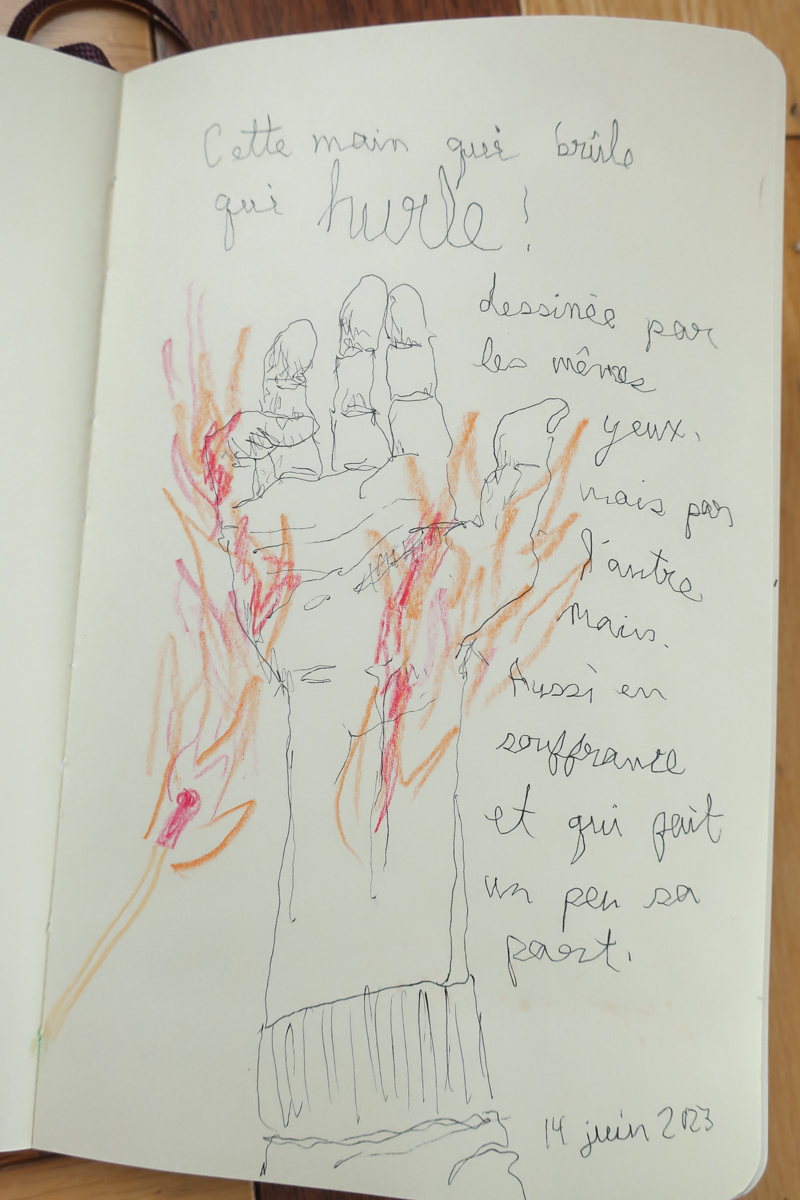 Cette main qui brûle
qui hurle !
dessinée par
les mêmes
yeux,
mais par
l'autre
main.
Aussi en
souffrance
et qui fait
un peu sa
part.
14 juin 2023